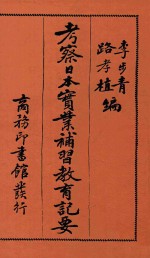 李步青
路孝植 編
考察日本實業補習教育記要
商務印書館發行